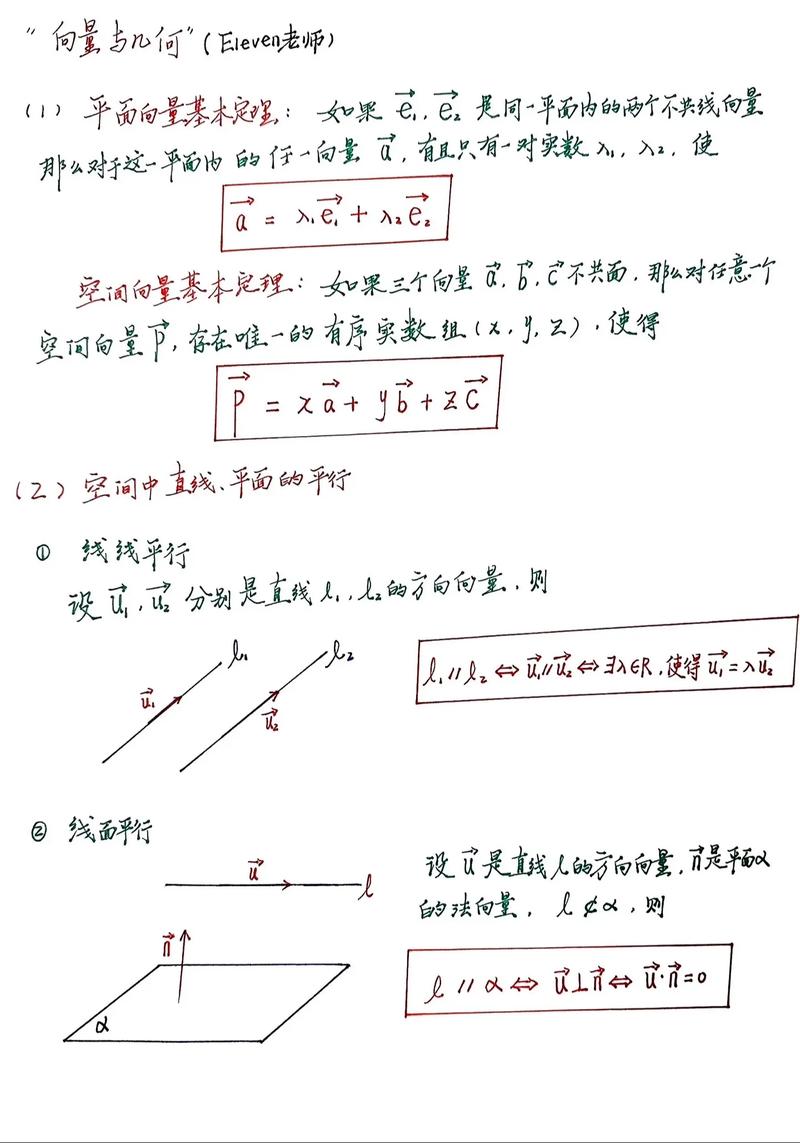 “向量与几何”(Eleven老师)
(1) 平面向量基本定理：如果 e₁⃗, e₂⃗ 是同一平面内的两个不共线向量
那么对于这一平面内的任一向量 a⃗，有且只有一对实数 λ₁, λ₂，使
a⃗ = λ₁e₁⃗ + λ₂e₂⃗
空间向量基本定理：如果三个向量 a⃗, b⃗, c⃗ 不共面，那么对任意一个
空间向量 p⃗，存在唯一的有序实数组 (x, y, z)，使得
p⃗ = xa⃗ + yb⃗ + zc⃗
(2) 空间中直线、平面的平行
① 线线平行
设 u₁⃗, u₂⃗ 分别是直线 l₁, l₂ 的方向向量，则
l₁
l₂
u₁⃗
u₂⃗
l₁ // l₂ ⇔ u₁⃗ // u₂⃗ ⇔ ∃λ∈R，使得 u₁⃗ = λu₂⃗
② 线面平行
u⃗
l
n⃗
α
设 u⃗ 是直线 l 的方向向量，n⃗ 是平面α
的法向量，l ⊄ α，则
l // α ⇔ u⃗ ⊥ n⃗ ⇔ u⃗·n⃗ = 0